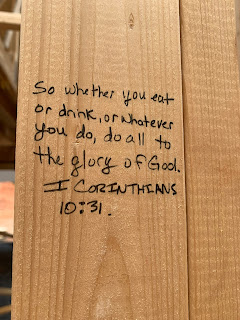 So whether you eat
or drink, or whatever
you do, do all to
the glory of God.
I CORINTHIANS
10:31.